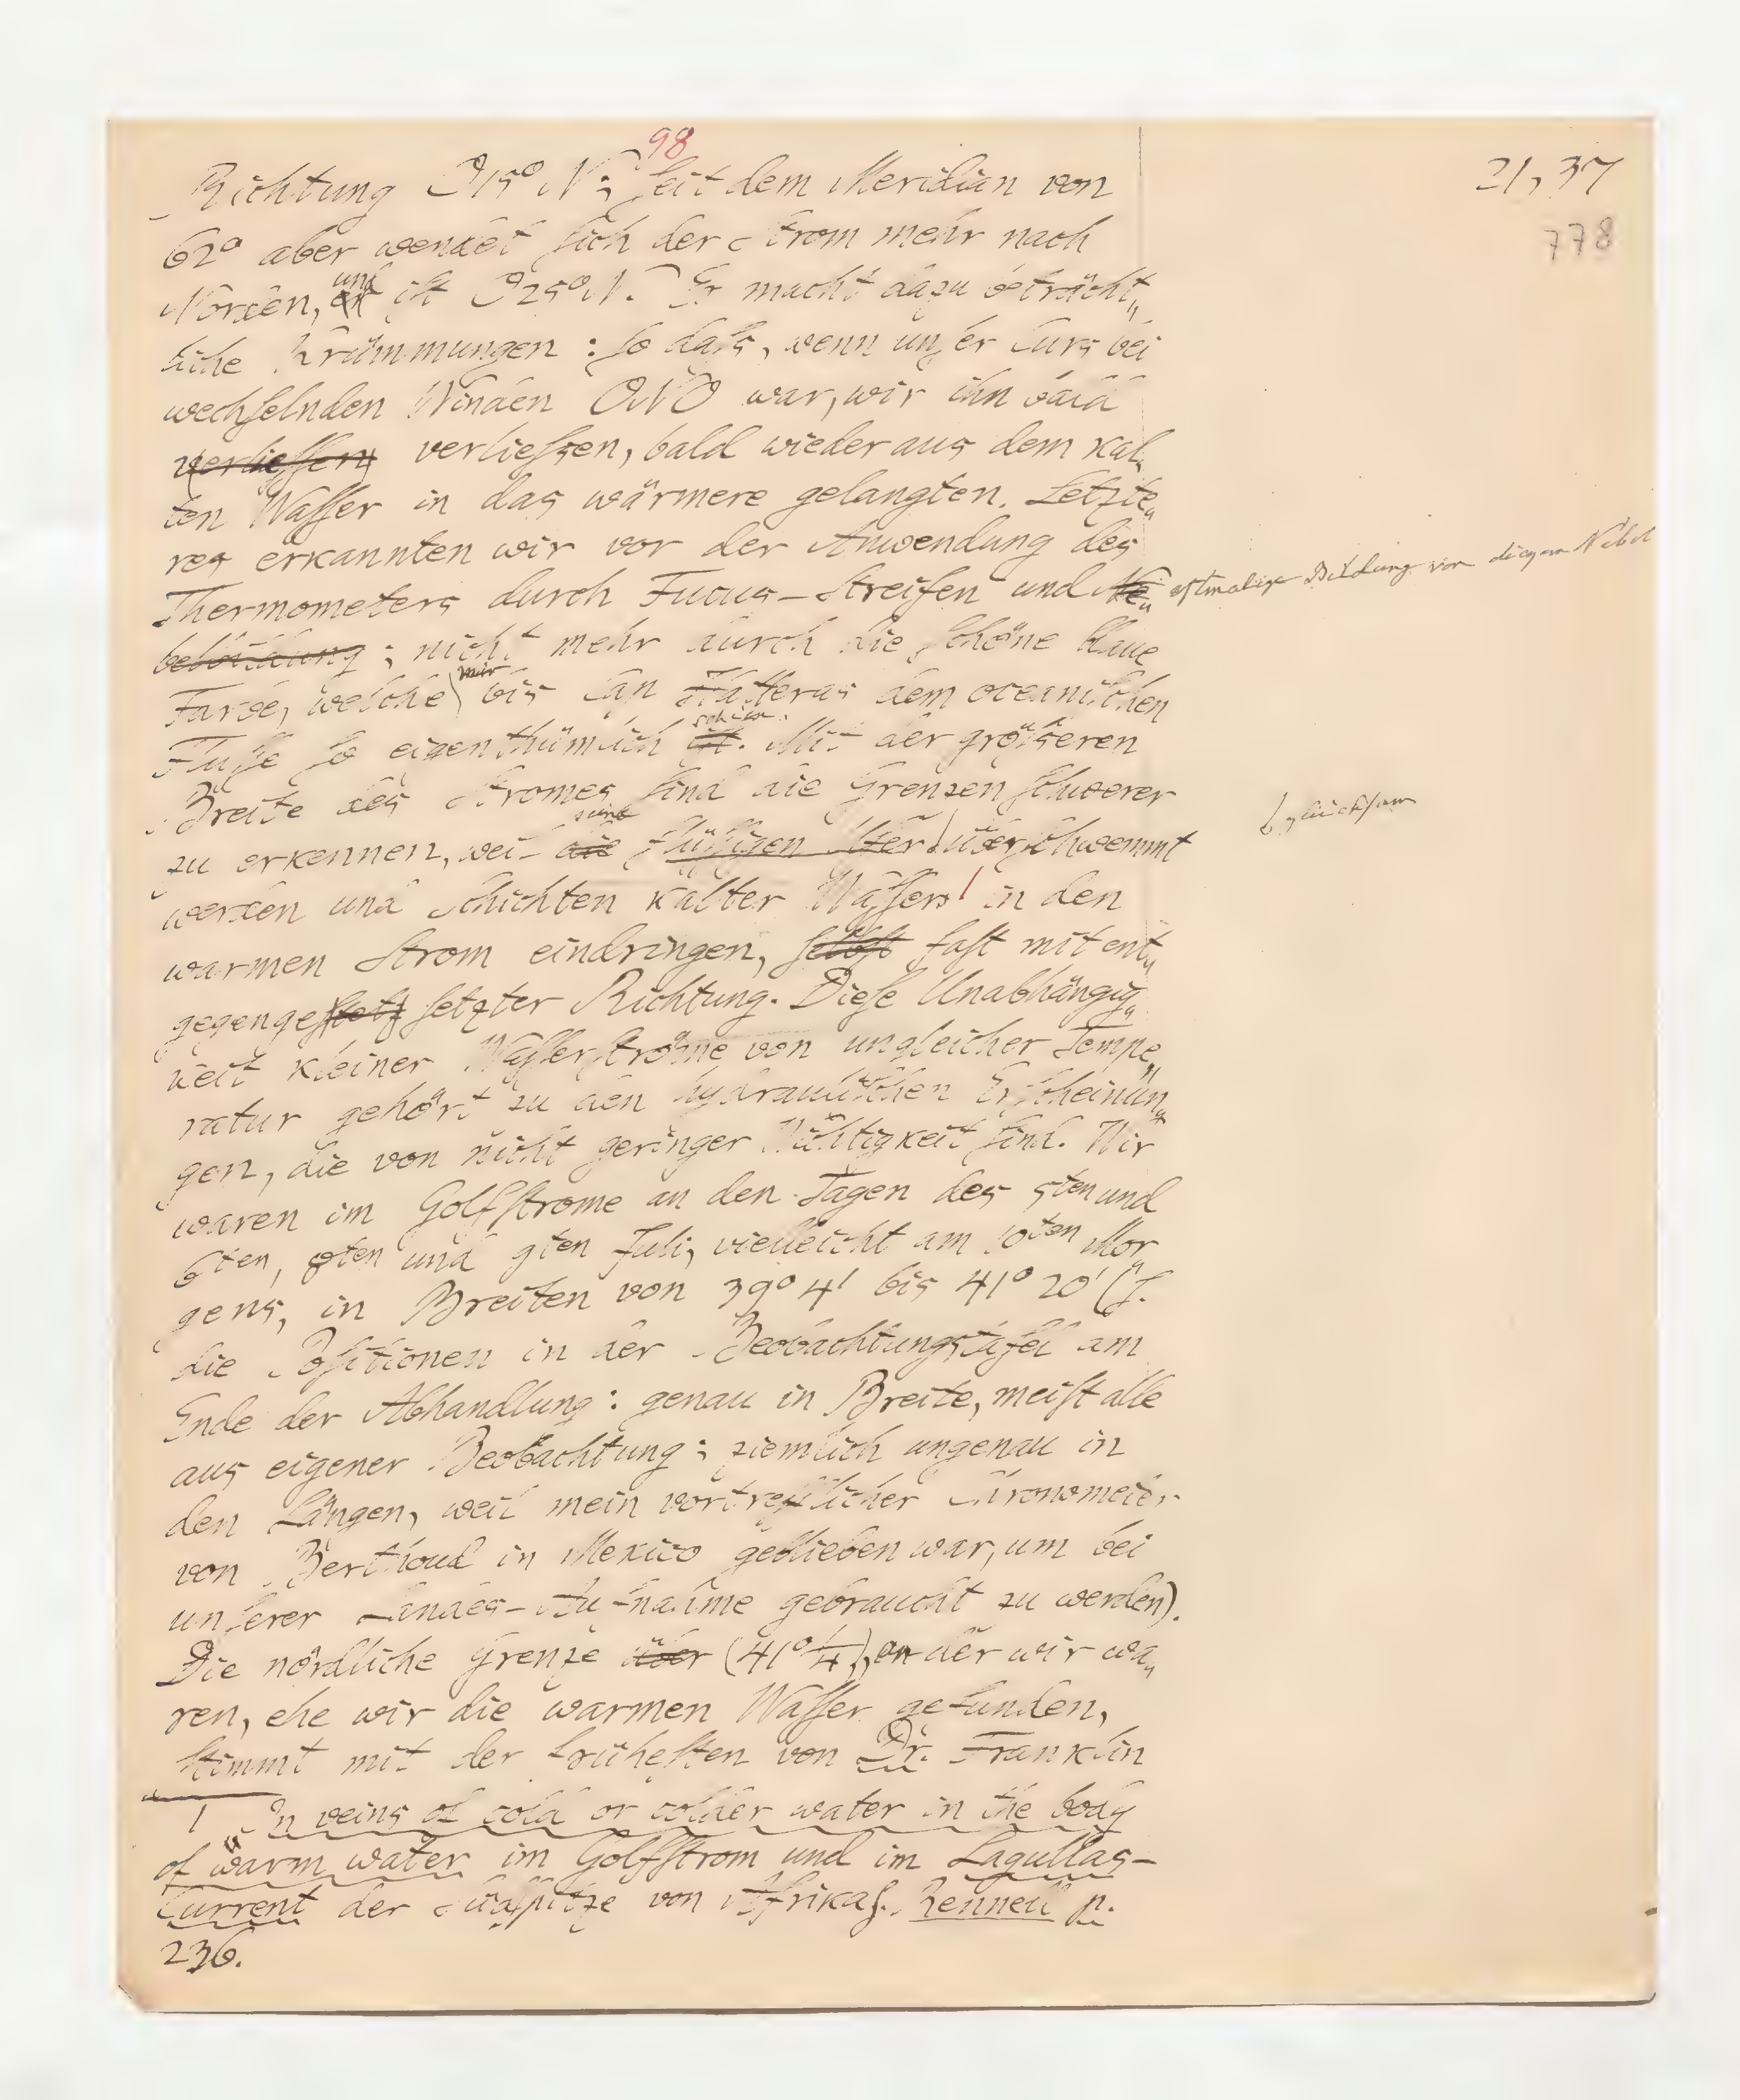 98
21, 37
778
Richtung O15° N; seit dem Meridian von
62° aber wendet sich der Strom mehr nach
Norden, und ist O25° N. Er macht dazu beträcht„
liche Krümmungen: so daſs, wenn unser Curs bei
wechselnden Winden ONO war, wir ihn bald
verliessen verlieſsen, bald wieder aus dem kal„
ten Wasser in das wärmere gelangten. Letzte„
res erkannten wir vor der Anwendung des
Thermometers durch Fucus-Streifen und Ne„ oftmalige Bildung von diesem Nebel
belbildung; nicht mehr durch die schöne blaue
Farbe, welche mir bis Cap Hatteras dem oceanischen
Flusse so eigenthümlich ist schien. Mit der gröſseren
Breite des Stromes sind die Grenzen schwerer
zu erkennen, weil die seine flüssigen Ufer überschwemmt
gleichsam
werden und Schichten kalter Wasser 1 in den
warmen Strom eindringen, selbst fast mit ent„
gegengesetz setzter Richtung. Diese Unabhängig„
keit kleiner Wasserströme von ungleicher Tempe„
ratur gehört zu den hydraulischen Erscheinun„
gen, die von nicht geringer Wichtigkeit sind. Wir
waren im Golfstrome an den Tagen des 5ten und
6ten, 8ten und 9ten Juli, vielleicht am 10ten Mor„
gens, in Breiten von 39° 4' bis 41° 20' (s.
die Positionen in der Beobachtungstafel am
Ende der Abhandlung: genau in Breite, meist alle
aus eigener Beobachtung; ziemlich ungenau in
den Längen, weil mein vortrefflicher Chronometer
von Berthoud in Mexico geblieben war, um bei
unserer Landes-Aufnahme gebraucht zu werden).
Die nördliche Grenze über (41° 1/4), an der wir wa„
ren, ehe wir die warmen Wasser gefunden,
stimmt mit der frühesten von Dr. Franklin
1 In veins of cold or colder water in the body
of warm water im Golfstrom und im Lagullas-
Current der Südspitze von Afrika s. Rennell p.
236.